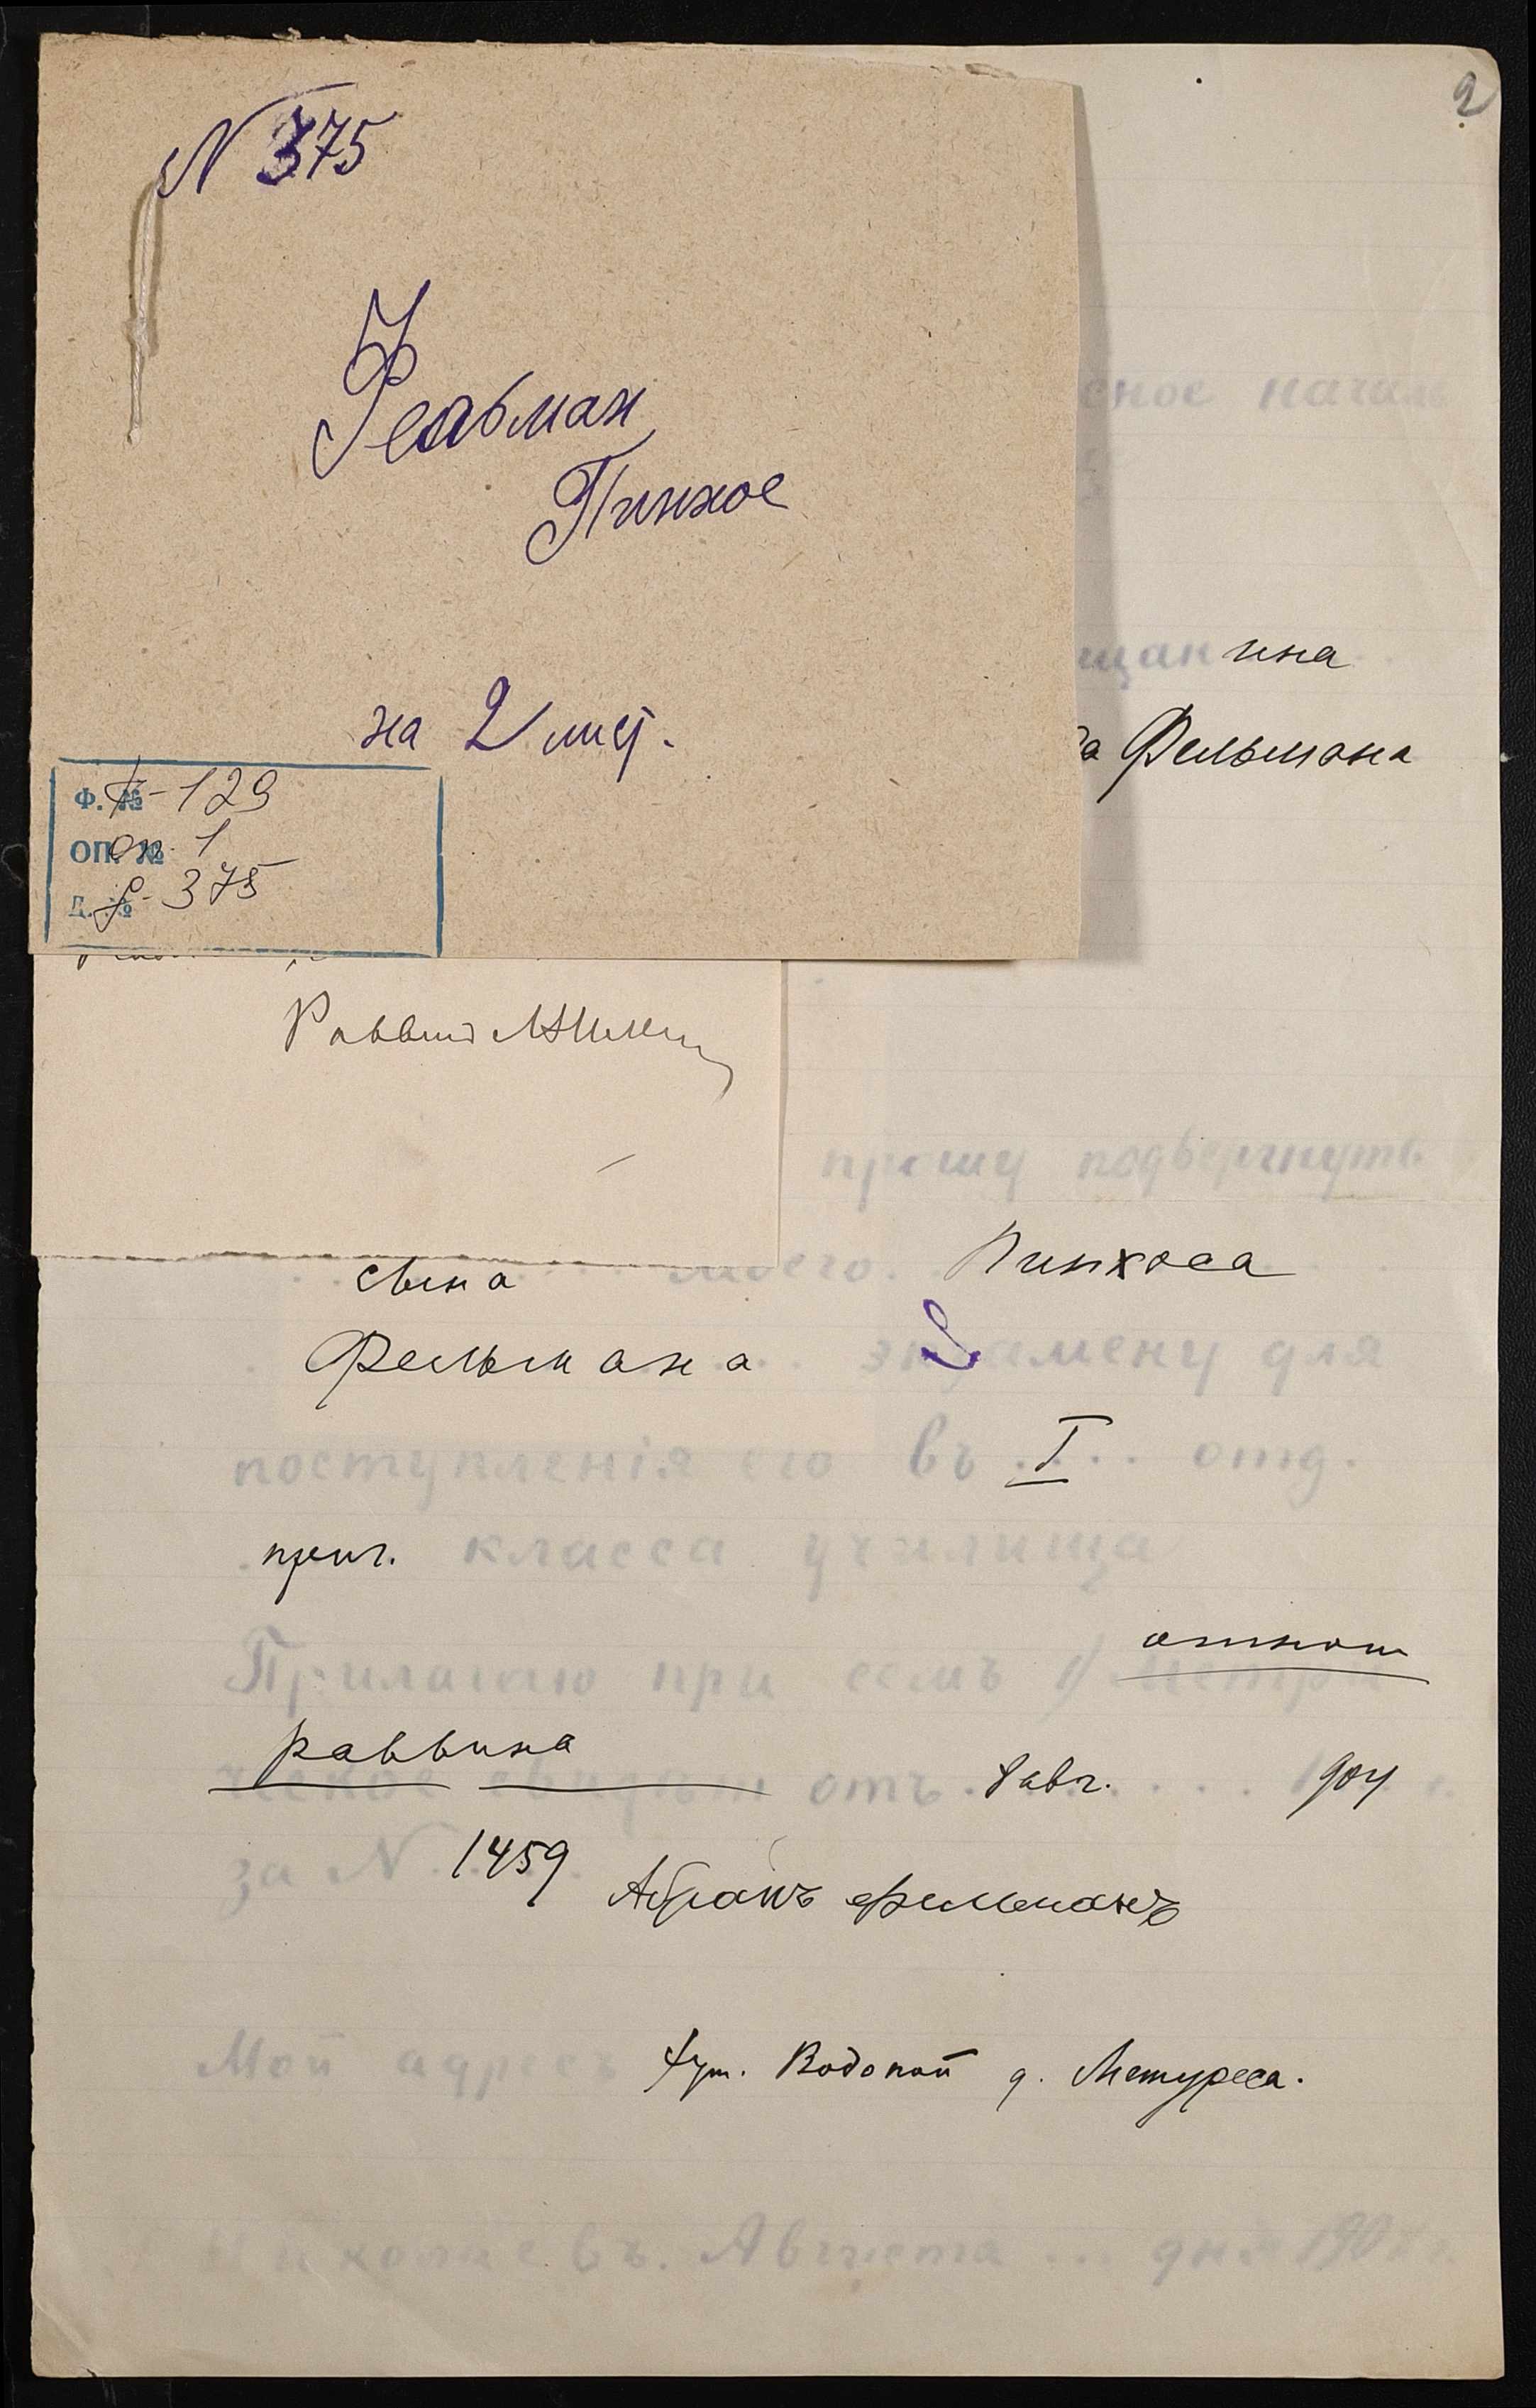 2
N 375
Фельман
Пинхос
на 2 лист.
Ф. № 129
ОП. № 1
Д. № 375
сное началь
щанина
ва Фельмана
Раввин
прошу подвергнуть
сына моего Пинхоса
Фельмана экзамену для
поступленія его въ I отд.
приг. класса училища
Прилагаю при семъ 1) метри
отнош
раввина
ческое свидѣт отъ 8 авг. 1904 г.
за N 1459
Абрамъ Фельманъ
Мой адресъ хут. Водопой д. Метуреса.
Николаевъ. Августа ... дня 190